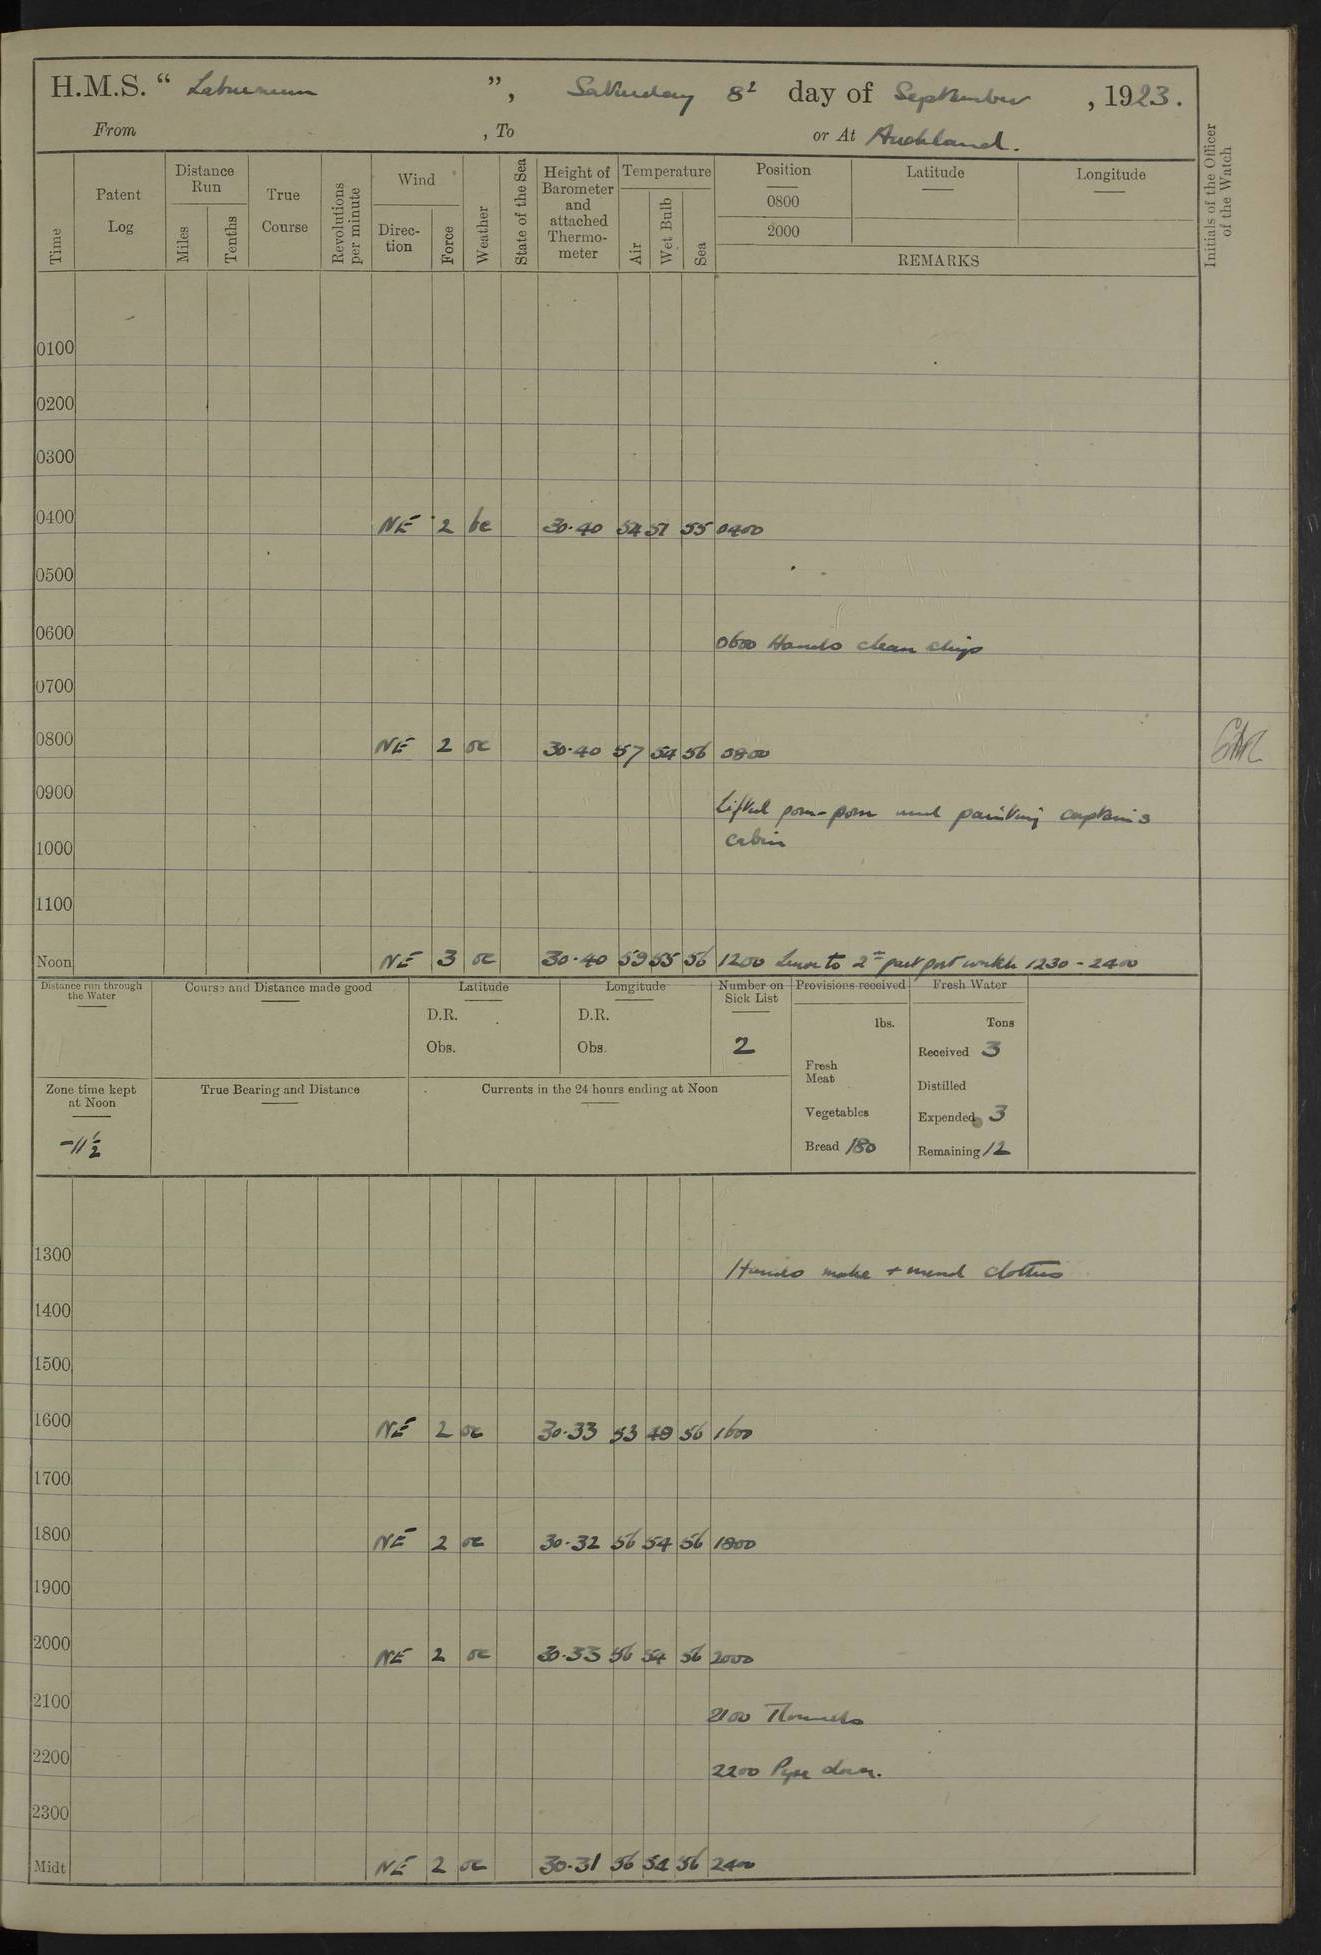 H.M.S. “ Laburnum ”, Saturday 8th day of September, 1923.
From , To or At Auckland.
Time
Patent Log
Distance Run
Miles
Tenths
True Course
Revolutions per minute
Wind
Direc-tion
Force
Weather
State of the Sea
Height of Barometer and attached Thermo-meter
Temperature
Air
Wet Bulb
Sea
Position Latitude Longitude
0800
2000
REMARKS
Initials of the Officer of the Watch
0100
0200
0300
0400 NE 2 bc 30·40 54 51 55 0400
0500
0600 0600 Hands clean ship
0700
0800 NE 2 oc 30·40 57 54 56 0800
0900 Lifted pom-pom and painting captains
cabin
1000
1100
Noon NE 3 oc 30·40 59 55 56 1200 Leave to 2nd part port watch 1230 - 2400
Distance run through the Water
Course and Distance made good
Latitude
D.R.
Obs.
Longitude
D.R.
Obs.
Number on Sick List
2
Provisions received
lbs.
Fresh Meat
Vegetables
Bread 180
Fresh Water
Tons
Received 3
Distilled
Expended 3
Remaining 12
Zone time kept at Noon
-11½
True Bearing and Distance
Currents in the 24 hours ending at Noon
1300 Hands make + mend clothes
1400
1500
1600 NE 2 oc 30·33 53 48 56 1600
1700
1800 NE 2 oc 30·32 56 54 56 1800
1900
2000 NE 2 oc 30·33 56 54 56 2000
2100 2100 Rounds
2200 2200 Pipe down.
2300
Midt NE 2 oc 30·31 56 54 56 2400